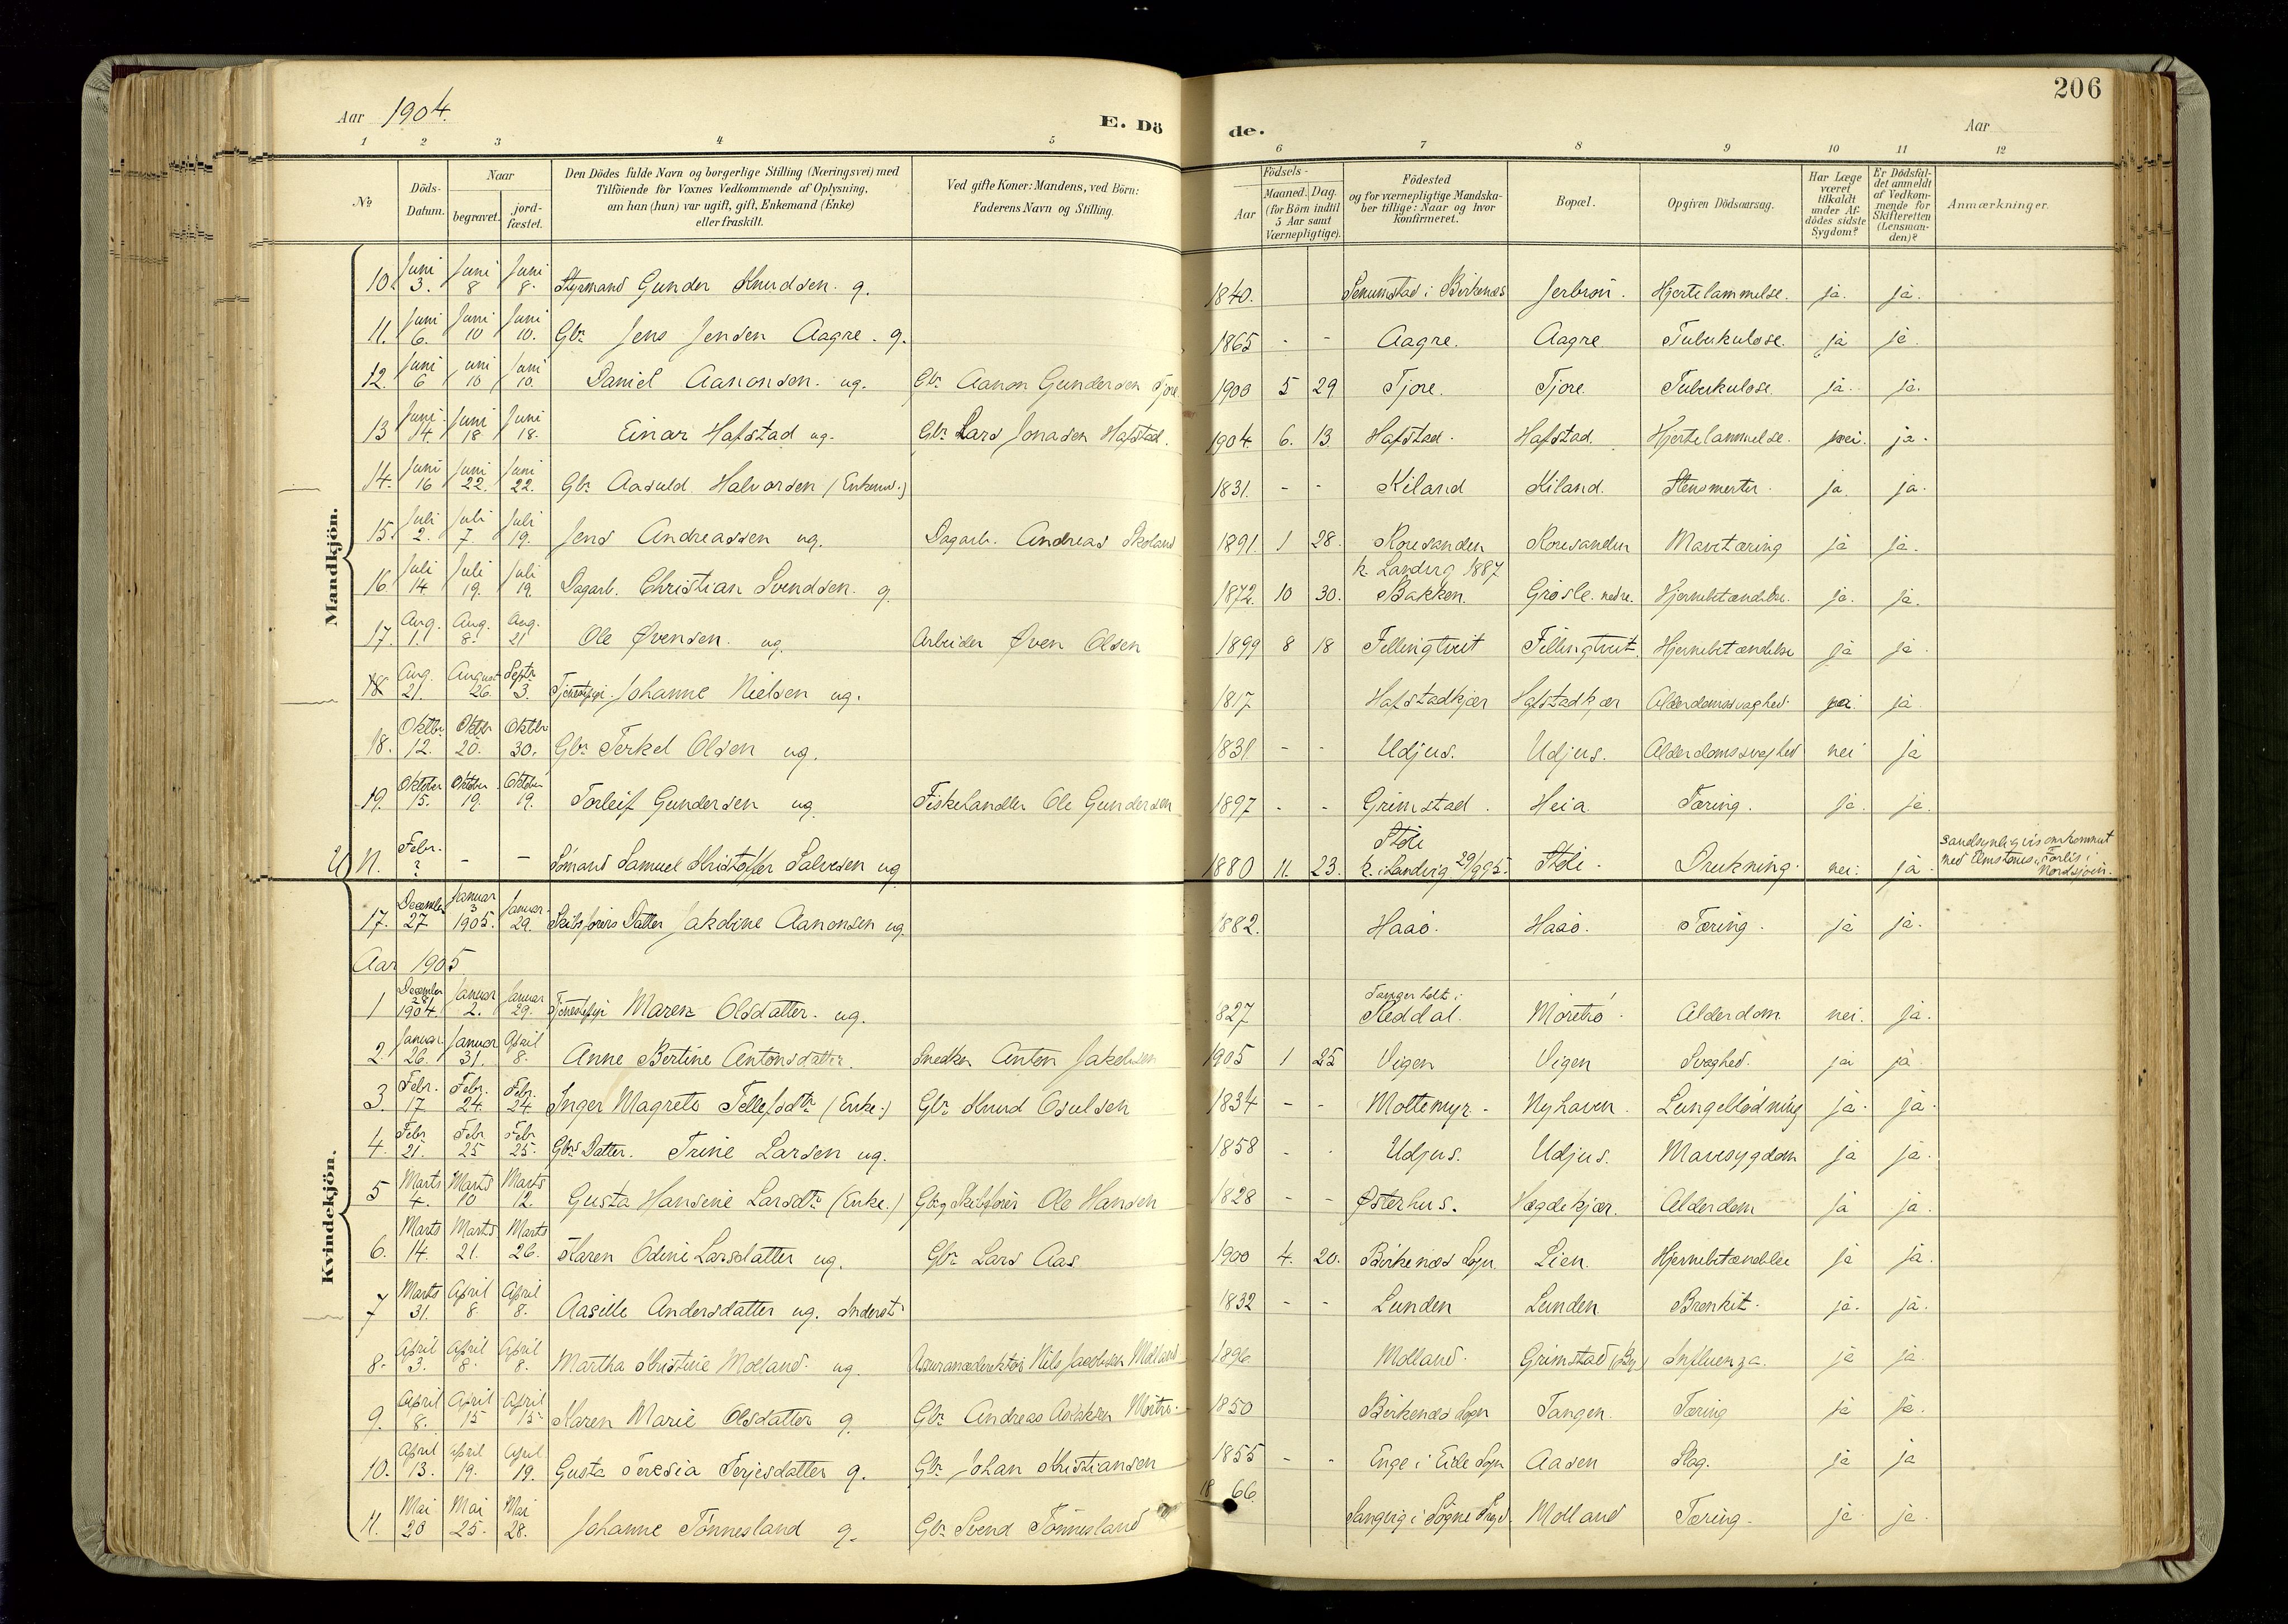 206
Aar 1904.
E. Dö de.
Aar
1 2 3 4 5 6 7 8 9 10 11 12
No
Döds-Datum.
Naar
begravet.
jordfæstet.
Den Dödes fulde Navn og borgerlige Stilling (Næringsvei) med
Tilföiende for Voxnes Vedkommende af Oplysning,
om han (hun) var ugift, gift, Enkemand (Enke)
eller fraskilt.
Ved gifte Koner: Mandens, ved Börn:
Faderens Navn og Stilling.
Födsels-
Aar
Maaned. Dag.
(for Börn indtil
5 Aar samt
Værnepligtige).
Födested
og for værnepligtige Mandska-
ber tillige: Naar og hvor
konfirmeret.
Bopæl.
Opgiven Dödsaarsag.
Har Læge
været
tilkaldt
under Af-
dödes sidste
Sygdom?
Er Dödsfal-
det anmeldt
af Vedkom-
mende for
Skifteretten
(Lensman-
den)?
Anmærkninger.
Mandkjön.
10. Juni 3. Juni 8 Juni 8. Styrmand Gunder Knudsen. g. 1840. Senumstad i Birkenæs Hjertelammelse. ja. ja.
11. Juni 6. Juni 10 Juni 10. Gbr. Jens Jensen Aagre. g. 1865 - - Aagre. Aagre Tuberkulose. ja ja.
12. Juni 6 Juni 10 Juni 10. Daniel Aanonsen. ug. Gbr. Aanon Gundersen Tjore 1900 5 29 Tjore. Tjore. Tuberkulose. ja. ja.
13 Juni 14. Juni 18 Juni 18. Einar Hafstad ug. Gbr. Lars Jonasen Hafstad. 1904. 6. 13 Hafstad. Hafstad. Hjertelammelse. nei. ja.
14. Juni 16 Juni 22. Juni 22. Gbr. Aasuld Halvorsen (Enkem.) 1831. - - Kiland Kiland. Stensmerter. ja. ja.
15. Juli 2. Juli 7. Juli 19. Jens Andreassen ug. Dagarb. Andreas Skoland 1891. 1 28. Roresanden Roresanden Mavetæring ja ja.
16. Juli 14. Juli 19. Juli 19. Dagarb. Christian Svendsen. g. 1872. 10 30. k. Landvig 1887 Bakken. Grøsle nedre. Hjernebetændelse. ja. ja.
17. Aug. 1. Aug. 8. Aug. 21 Ole Øvensen. ug. Arbeider Øven Olsen 1899 8 18 Fellingtveit Fellingtveit. Hjernebetændelse ja ja.
18 Aug. 21. August 26. Septr 3. Tjenestepi. Johanne Nielsen ug. 1817 Hafstadkjær Hafstadkjær Alderdomssvaghed. ja.
18. Oktbr. 12. Oktbr 20. Oktbr 30. Gbr. Terkel Olsen ug. 1831. - - Udjus. Udjus. Alderdomssvaghed nei ja
19. Oktober 15. Oktober 19. Oktober 19. Torleif Gundersen ug. Fiskehandler Ole Gundersen 1897 - - Grimstad. Heia. Tæring. ja. ja.
N. Febr. ? - - Sömand Samuel Kristoffer Salvesen ug 1880 11. 23. Stöle k. i Landvig 29/9 95. Stöle. Drukning. nei. ja. sandsynligvis omkommet
Forlis i
Nordsjöen.
Kvindekjön.
17. December 27 Januar 3 1905. Januar 29. Skibsførers Datter Jakobine Aanonsen ug. 1882. Haaö. Haaö. Tæring. ja ja.
Aar 1905
1 December 28/ 1904. Januar 2. Januar 29. Tjenestepi Maren Olsdatter. ug. 1827 Tangerholt i Reddal. Moretrö. Alderdom nei. ja.
2. Januar 26. Januar 31. April 8. Anne Bertine Antonsdatter. Snedker Anton Jakobsen 1905 1 25 Vigen Vigen Svaghed. ja ja.
3. Febr. 17. Febr. 24. Febr. 24. Inger Magrete Tellefsdtr (Enke.) Gbr. Knud Osulsen 1834 - - Moltemyr - Nyhaven. Lungeblødning ja. ja.
4. Febr. 21. Febr. 25 Febr. 25. Gbrs Datter. Trine Larsen ug. 1858 - - Udjus. Udjus. Mavesygdom ja ja.
5 Marts 4. Marts 10 Marts 12. Gusta Hansine Larsdtr (Enke.) Gbr. og Skibsfører Ole Hansen 1828 - - Østerhus. Hægdekjær. Alderdom ja ja.
6. Marts 14. Marts 21. Marts 26. Karen Odine Larsdatter ug. Gbr. Lars Aas 1900 4. 20. Birkenæs Sogn Lien. Hjernebetændelse ja ja.
7 Marts 31. April 8. April 8. Aasille Andersdatter ug. Inderst 1832 - - Lunden Lunden Bronkit. ja. ja.
8. April 3. April 8. April 8. Martha Kristine Molland. ug. Assurancedirektör Nils Jacobsen Molland 1896 Molland. Grimstad (By) Influenza. ja ja.
9. April 8. April 15 April 15 Karen Marie Olsdatter g. Gbr. Andreas Aslaksen Moretrö. 1850 Birkenæs Sogn Tangen. Tæring ja ja.
10. April 13. April 19. April 19. Gusta Teresia Terjesdatter g. Gbr. Johan Kristiansen 1855 - - Enge i Eide Sogn Aasen Slag. ja ja
11. Mai 20 Mai 25. Mai 28. Johanne Tønnesland g. Gbr. Svend Tønnesland 1866. Sangvig i Søgne Molland Tæring. ja ja.